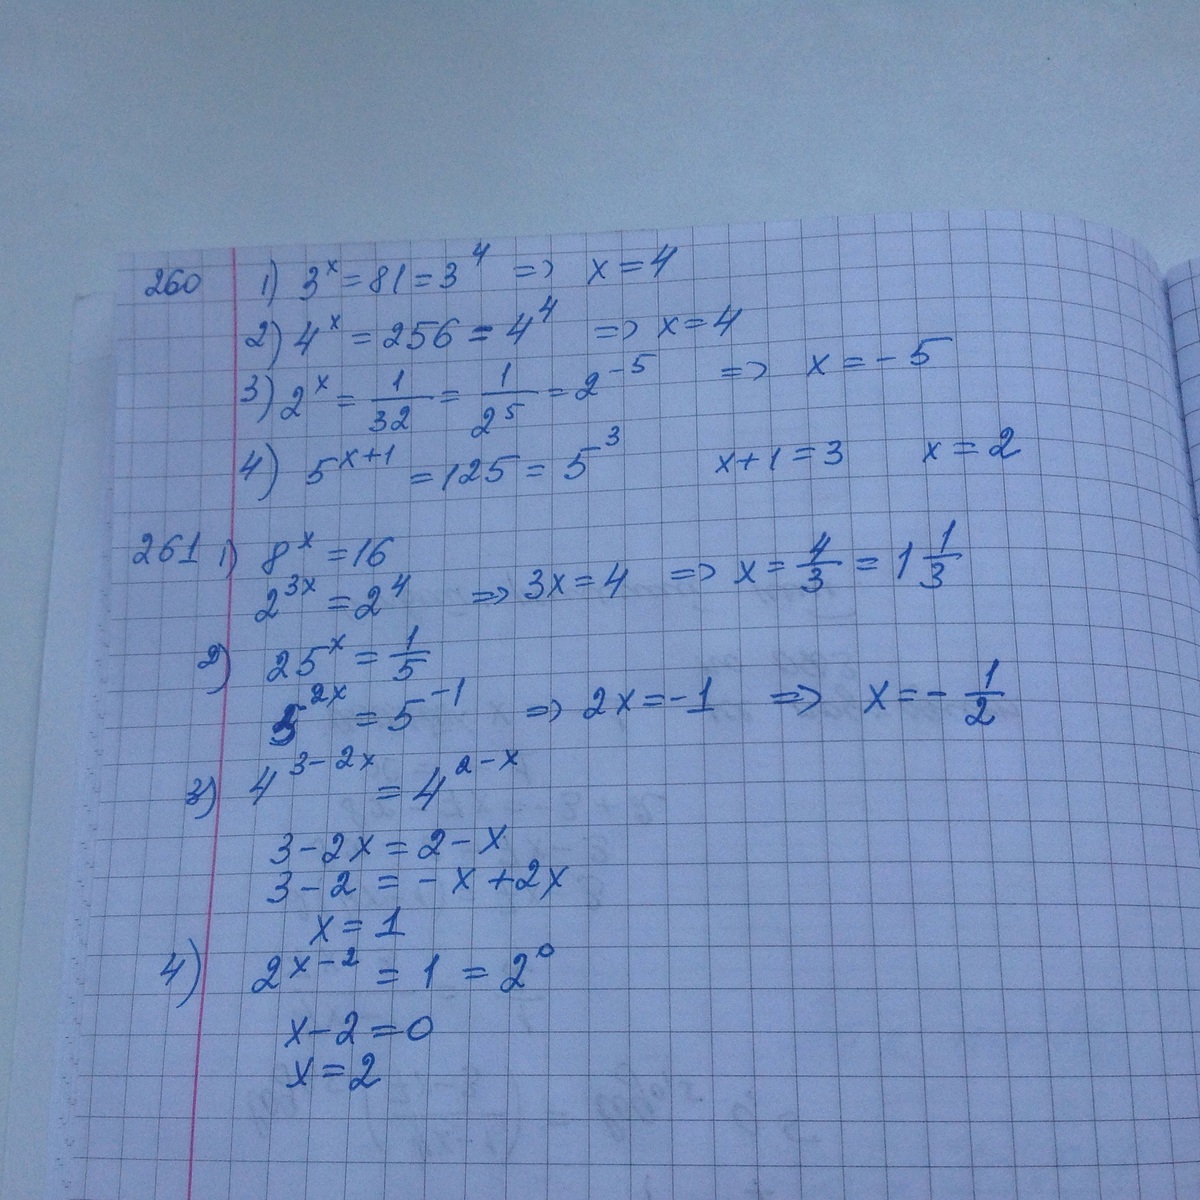 260 1) 3^x = 81 = 3^4 => x = 4
2) 4^x = 256 = 4^4 => x = 4
3) 2^x = 1/32 = 1/2^5 = 2^-5 => x = -5
4) 5^x+1 = 125 = 5^3 x+1 = 3 x = 2
261 1) 8^x = 16
2^3x = 2^4 => 3x = 4 => x = 4/3 = 1 1/3
2) 25^x = 1/5
5^2x = 5^-1 => 2x = -1 => x = - 1/2
3) 4^3-2x = 4^2-x
3 - 2x = 2 - x
3 - 2 = - x + 2x
x = 1
4) 2^x-2 = 1 = 2^0
x - 2 = 0
x = 2